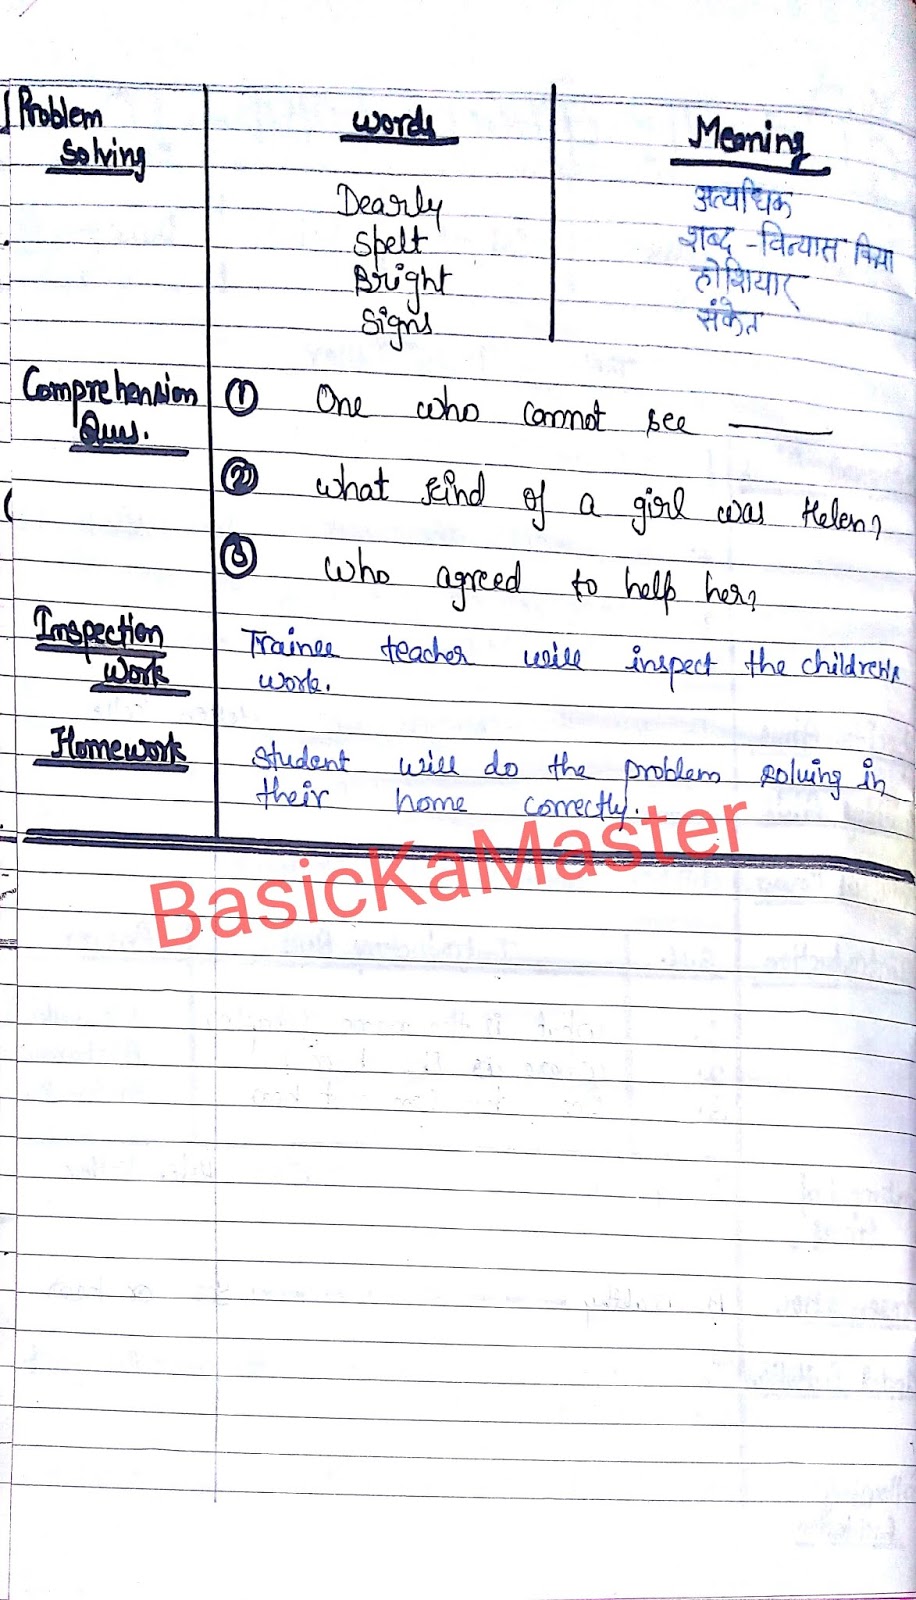 Problem Solving
Words
Meaning
Dearly अत्यधिक
Spelt शब्द-विन्यास किया
Bright होशियार
Signs संकेत
Comprehension Ques.
① One who cannot see ———
② What kind of a girl was Helen?
③ Who agreed to help her?
Inspection Work
Trainee teacher will inspect the children's
work.
Homework
Student will do the problem solving in
their home correctly.
BasicKaMaster